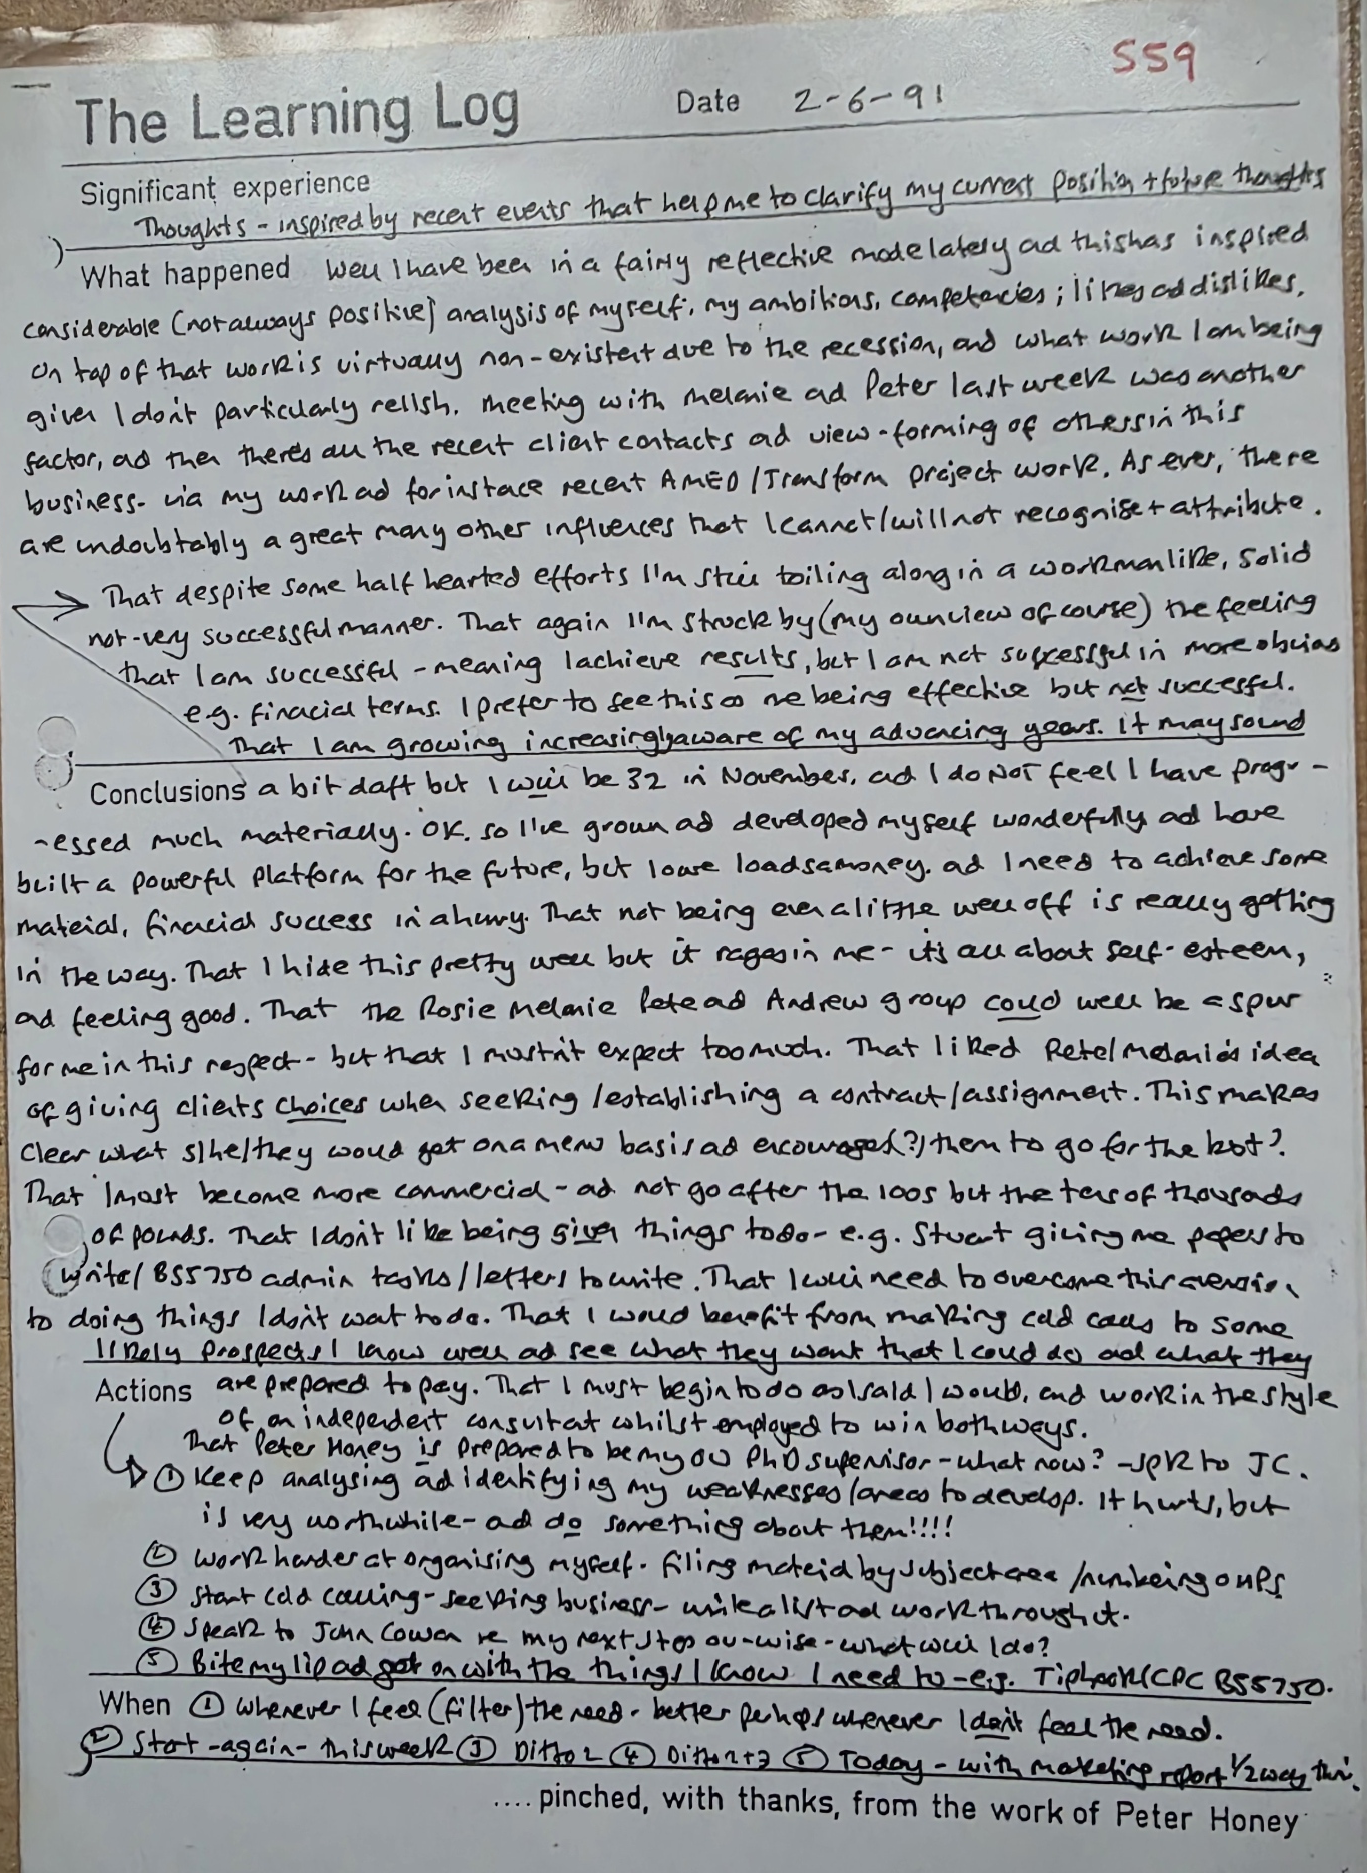 559
The Learning Log Date 2-6-91
Significant experience
Thoughts - inspired by recent events that help me to clarify my current position + future thoughts
What happened Well I have been in a fairly reflective mode lately ad this has inspired
considerable (not always positive) analysis of myself; my ambitions, competencies; likes ad dislikes.
On top of that work is virtually non-existent due to the recession, and what work I am being
given I don't particularly relish. Meeting with Melanie ad Peter last week was another
factor, ad then there's all the recent client contacts ad view-forming of others in this
business - via my work ad for instace recent AMED/Transform project work. As ever, there
are undoubtably a great many other influences that I cannot/will not recognise + attribute.
That despite some half hearted efforts I'm still toiling along in a workmanlike, solid
not-very successful manner. That again I'm struck by (my own view of course) the feeling
that I am successful - meaning I achieve results, but I am not successful in more obvious
e.g. financial terms. I prefer to see this as me being effective but not successful.
That I am growing increasingly aware of my advancing years. It may sound
Conclusions a bit daft but I will be 32 in November, ad I do NOT feel I have progr-
-essed much materially. OK, so I've grown ad developed myself wonderfully ad have
built a powerful platform for the future, but I owe loadsamoney. ad I need to achieve some
material, financial success in a hurry. That not being even a little well off is really getting
in the way. That I hide this pretty well but it rages in me - it's all about self-esteem,
ad feeling good. That the Rosie Melanie Pete ad Andrew group could well be a spur
for me in this respect - but that I mustn't expect too much. That I liked Pete/Melanie's idea
of giving clients choices when seeking/establishing a contract/assignment. This makes
clear what s/he/they would get on a menu basis ad encourages(?) them to go for the lot?
That I must become more commercial - ad not go after the 100s but the tens of thousands
of pounds. That I don't like being given things to do - e.g. Stuart giving me papers to
write/BS5750 admin tasks/letters to write. That I will need to overcome this aversion
to doing things I don't want to do. That I would benefit from making cold calls to some
likely prospects I know well ad see what they want that I could do ad what they
Actions are prepared to pay. That I must begin to do as I said I would, and work in the style
of an independent consultant whilst employed to win both ways.
That Peter Honey is prepared to be my OU PhD supervisor - what now? - spk to JC.
① Keep analysing ad identifying my weaknesses/areas to develop. It hurts, but
is very worthwhile - ad do something about them!!!!
② Work harder at organising myself. Filing material by subject area/numbering OHPs
③ Start cold calling - seeking business - write a list ad work through it.
④ Speak to John Cowan re my next step ou-wise - what will I do?
⑤ Bite my lip ad get on with the things I know I need to - e.g. Tiphook/CPC BS5750.
When ① Whenever I feel (filter) the need - better perhaps whenever I don't feel the need.
② Start - again - this week ③ Ditto 2 ④ Ditto 2+3 ⑤ Today - with marketing report 1/2 way thru.
.... pinched, with thanks, from the work of Peter Honey